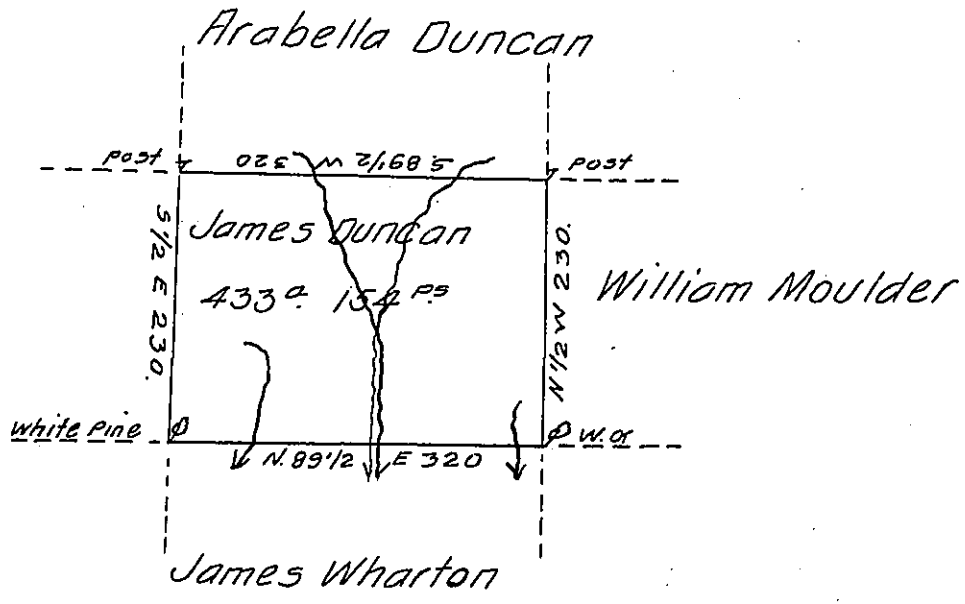 Arabella Duncan
Post
S. 89 1/2 W 320
Post
S 1/2 E 230.
James Duncan
433 a. 154 ps
N 1/2 W 230.
William Moulder
White Pine
N. 89 1/2 E 320
W. or
James Wharton